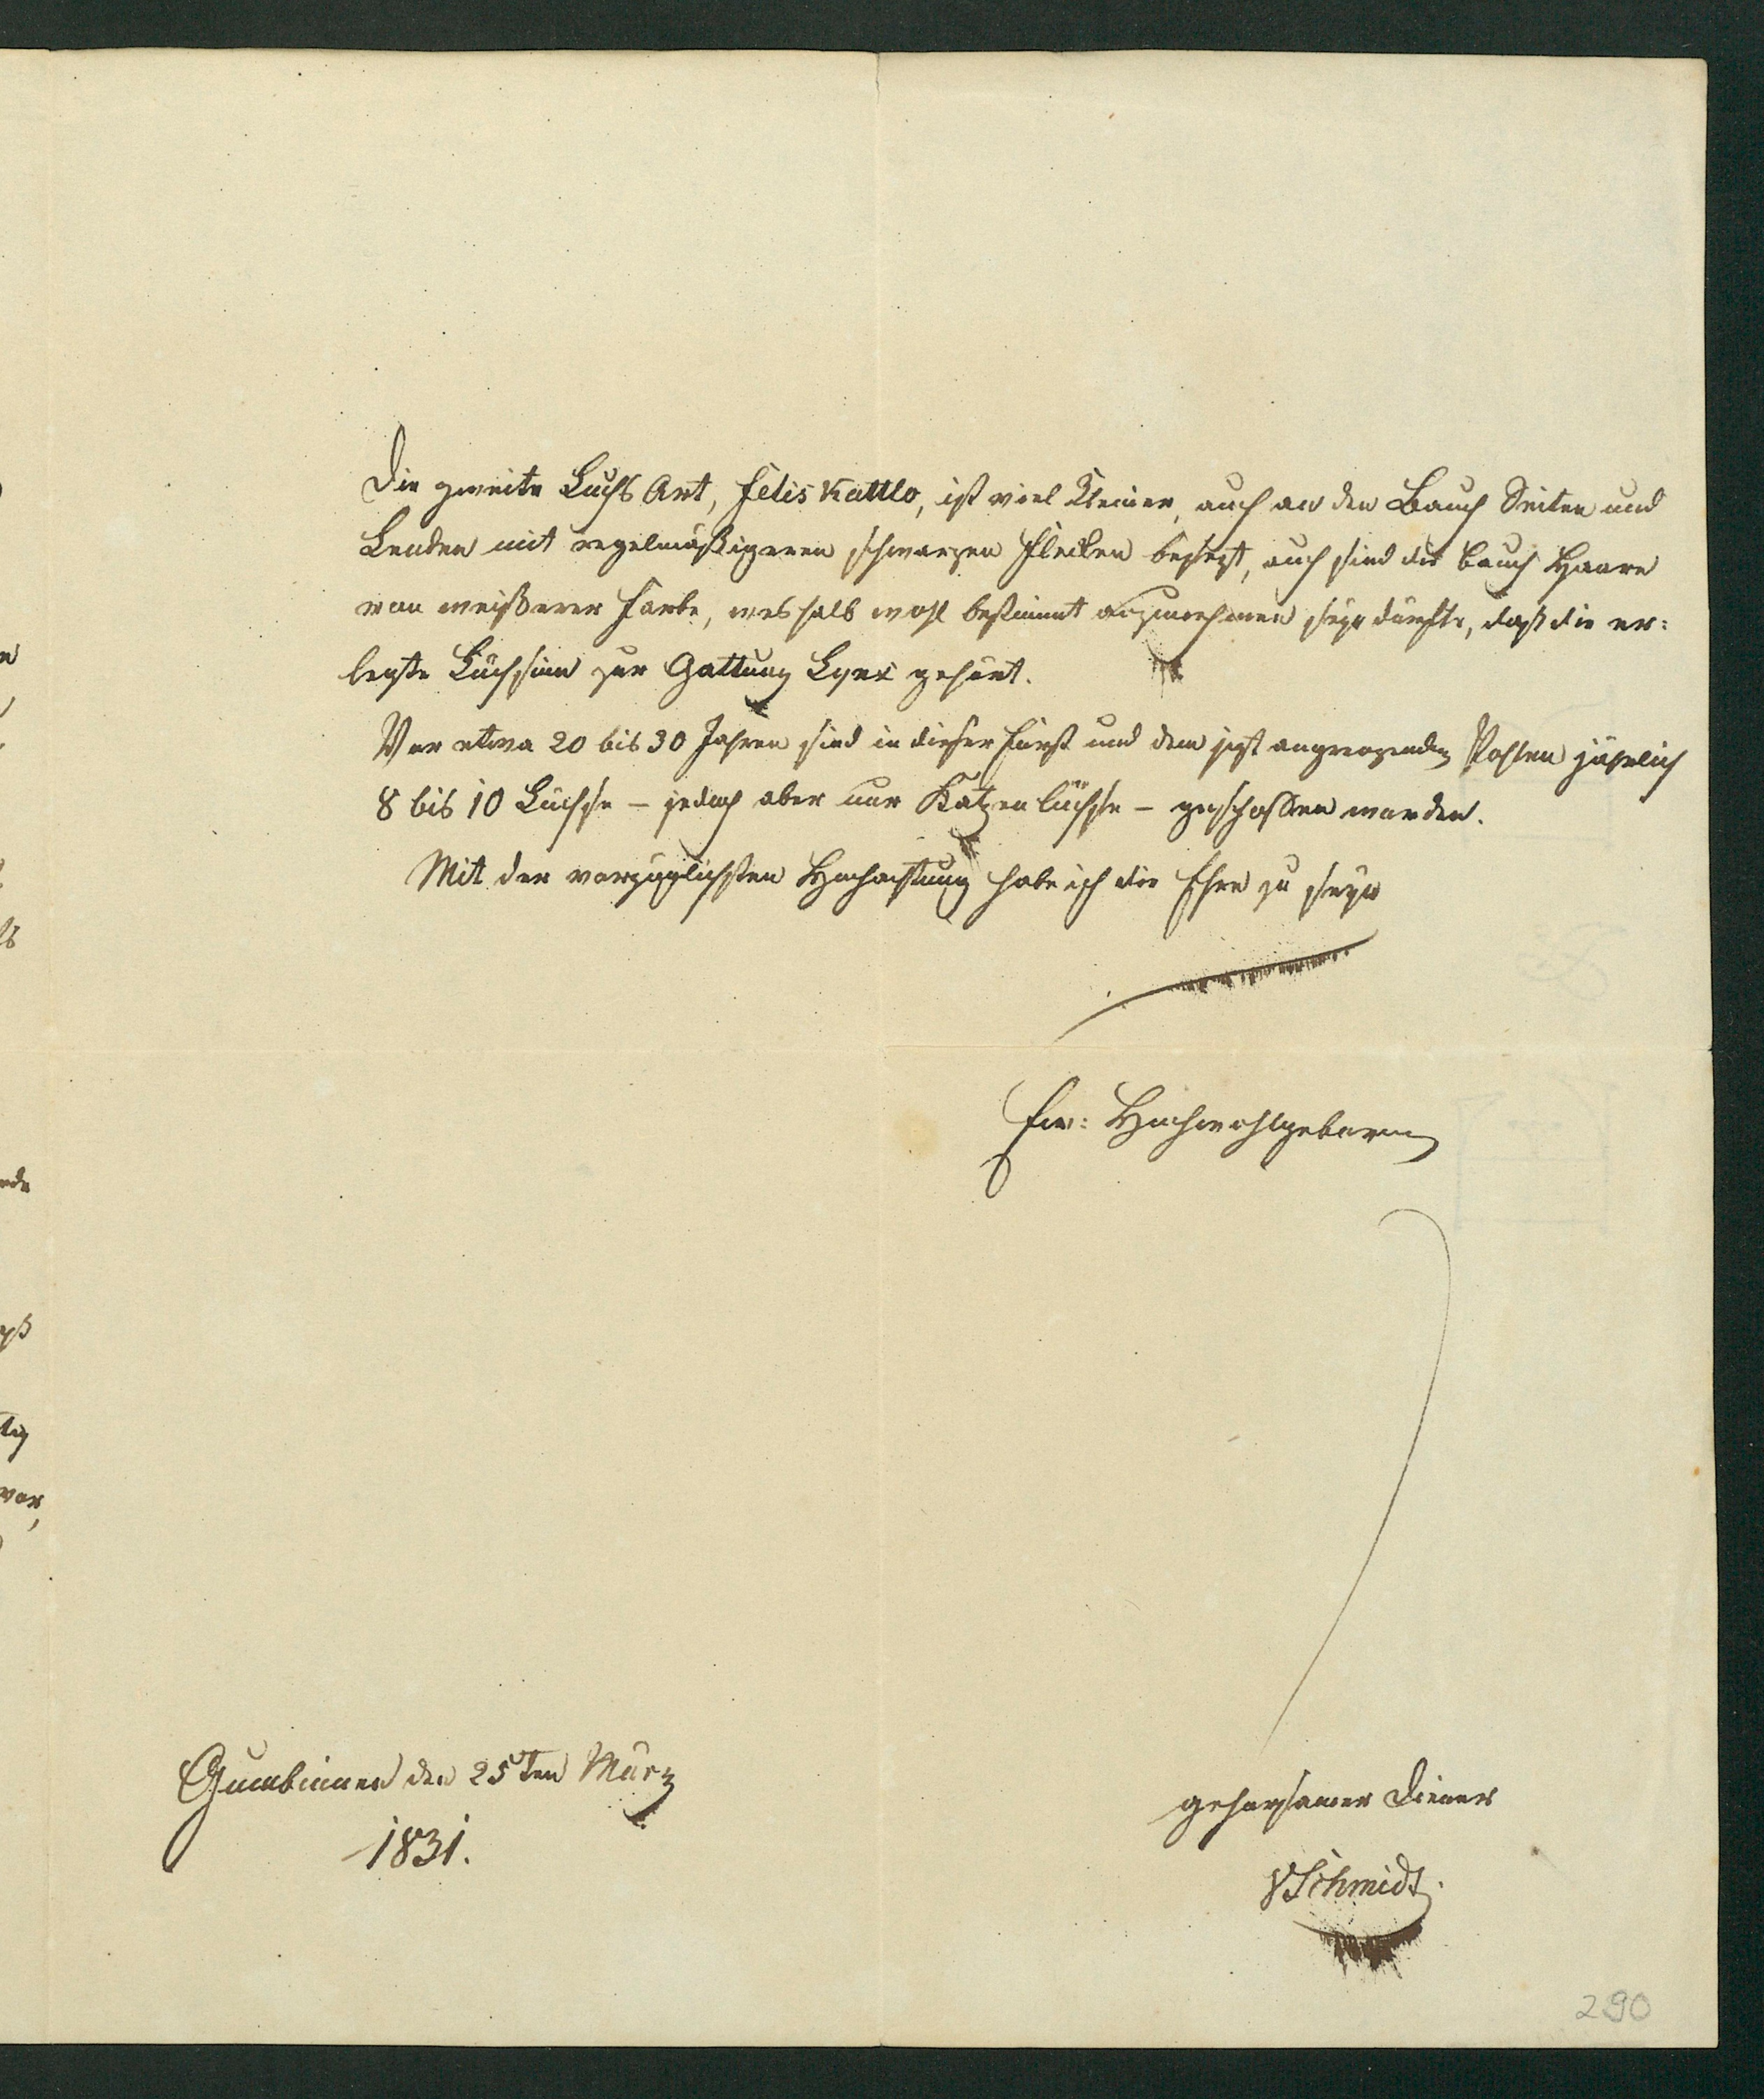 Die zweite Luchs Art, felis Kattlo, ist viel kleiner, auch an den Bauch Seiten und
Lenden mit regelmäßigeren schwarzen Flecken besezt, auch sind die Bauch Haare
von weißerer Farbe, weshalb wohl bestimmt anzunehmen seyn dürfte, daß die er:
legte Lüchsinn zur Gattung Lynx gehört.
Vor etwa 20 bis 30 Jahren sind in dieser Forst und dem jezt angrenzenden Pohlen jährlich
8 bis 10 Lüchse – jedoch aber nur Katzenlüchse – geschossen worden.
Mit der vorzüglichsten Hochachtung habe ich die Ehre zu seyn
Ew: Hochwohlgeboren
Gumbinnen den 25ten März
1831.
gehorsamer Diener
Schmidt.
290